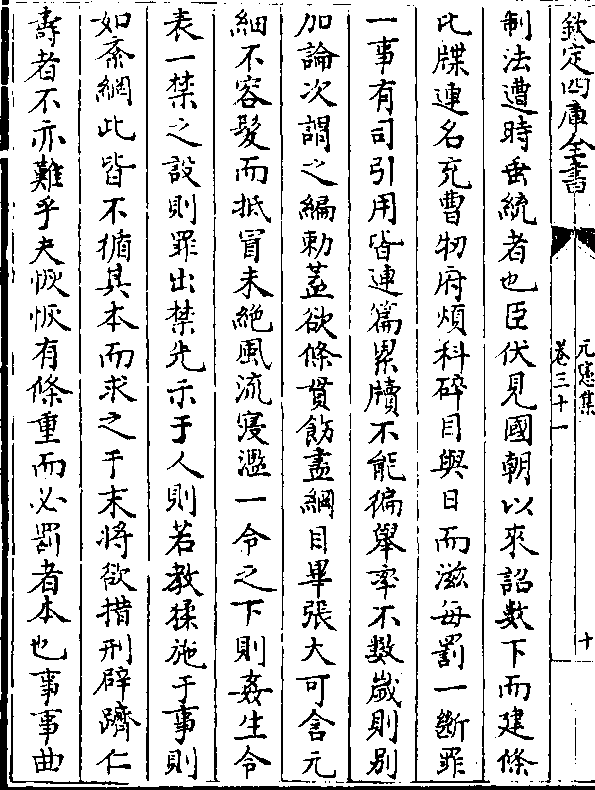 欽定四庫全書
元憲集
卷三十一
十
制法遭時垂統者也臣伏見國朝以來詔數下而建條
比牒連名充曹牣府煩科碎目與日而滋每罰一斷罪
一事有司引用皆連篇累牘不能徧舉率不數歲則别
加論次謂之編勅蓋欲條貫飭盡綱目畢張大可含元
細不容髮而抵冐未絶風流寖濫一令之下則姦生令
表一禁之設則罪出禁先示于人則若教猱施于事則
如紊網此皆不循其本而求之于末將欲措刑辟躋仁
壽者不亦難乎夫恢恢有條重而必罰者本也事事曲